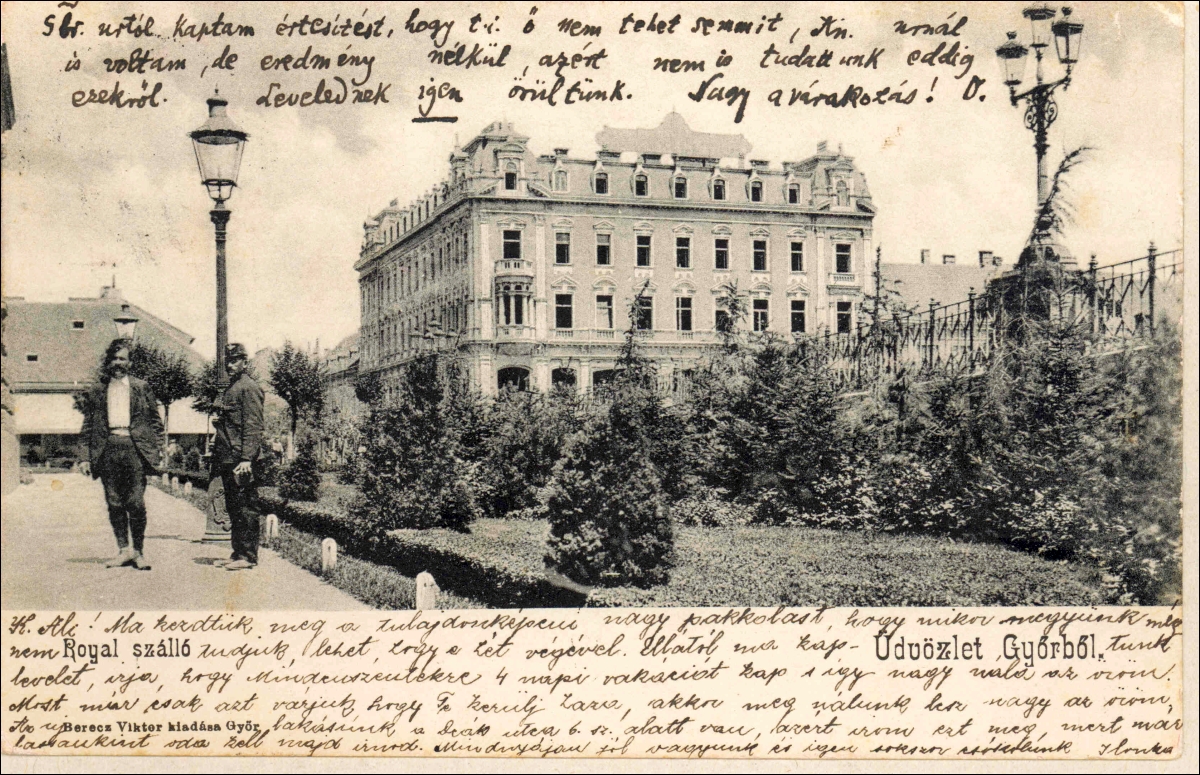 Gbr. urtól kaptam értesítést, hogy t.i. ő nem tehet semmit, Kn. urnál
is voltam, de eredmény nélkül, azért nem is tudattunk eddig
ezekről. Levelednek igen örültünk. Nagy a várakozás! O.
K. Ali! Ma kezdtük meg a tulajdonképeni nagy pakkolást, hogy mikor megyünk még
nem Royal szálló tudjuk, lehet, hogy e hét végével. Üdvözlet Győrből.
Ellától ma kap- tunk
levelet, irja, hogy Mindenszentekre 4 napi vakációt kap s így nagy nála az öröm.
Most már csak azt várjuk, hogy Te kerülj haza, akkor meg nálunk lesz nagy az öröm,
Az uj Berecz Viktor kiadása Győr, lakásunk a Deák utca 6. sz. alatt van, azért irom ezt meg, mert már
oda kell majd irnod. Mindnyájan jól vagyunk és igen sokszor csókolunk Ilonka